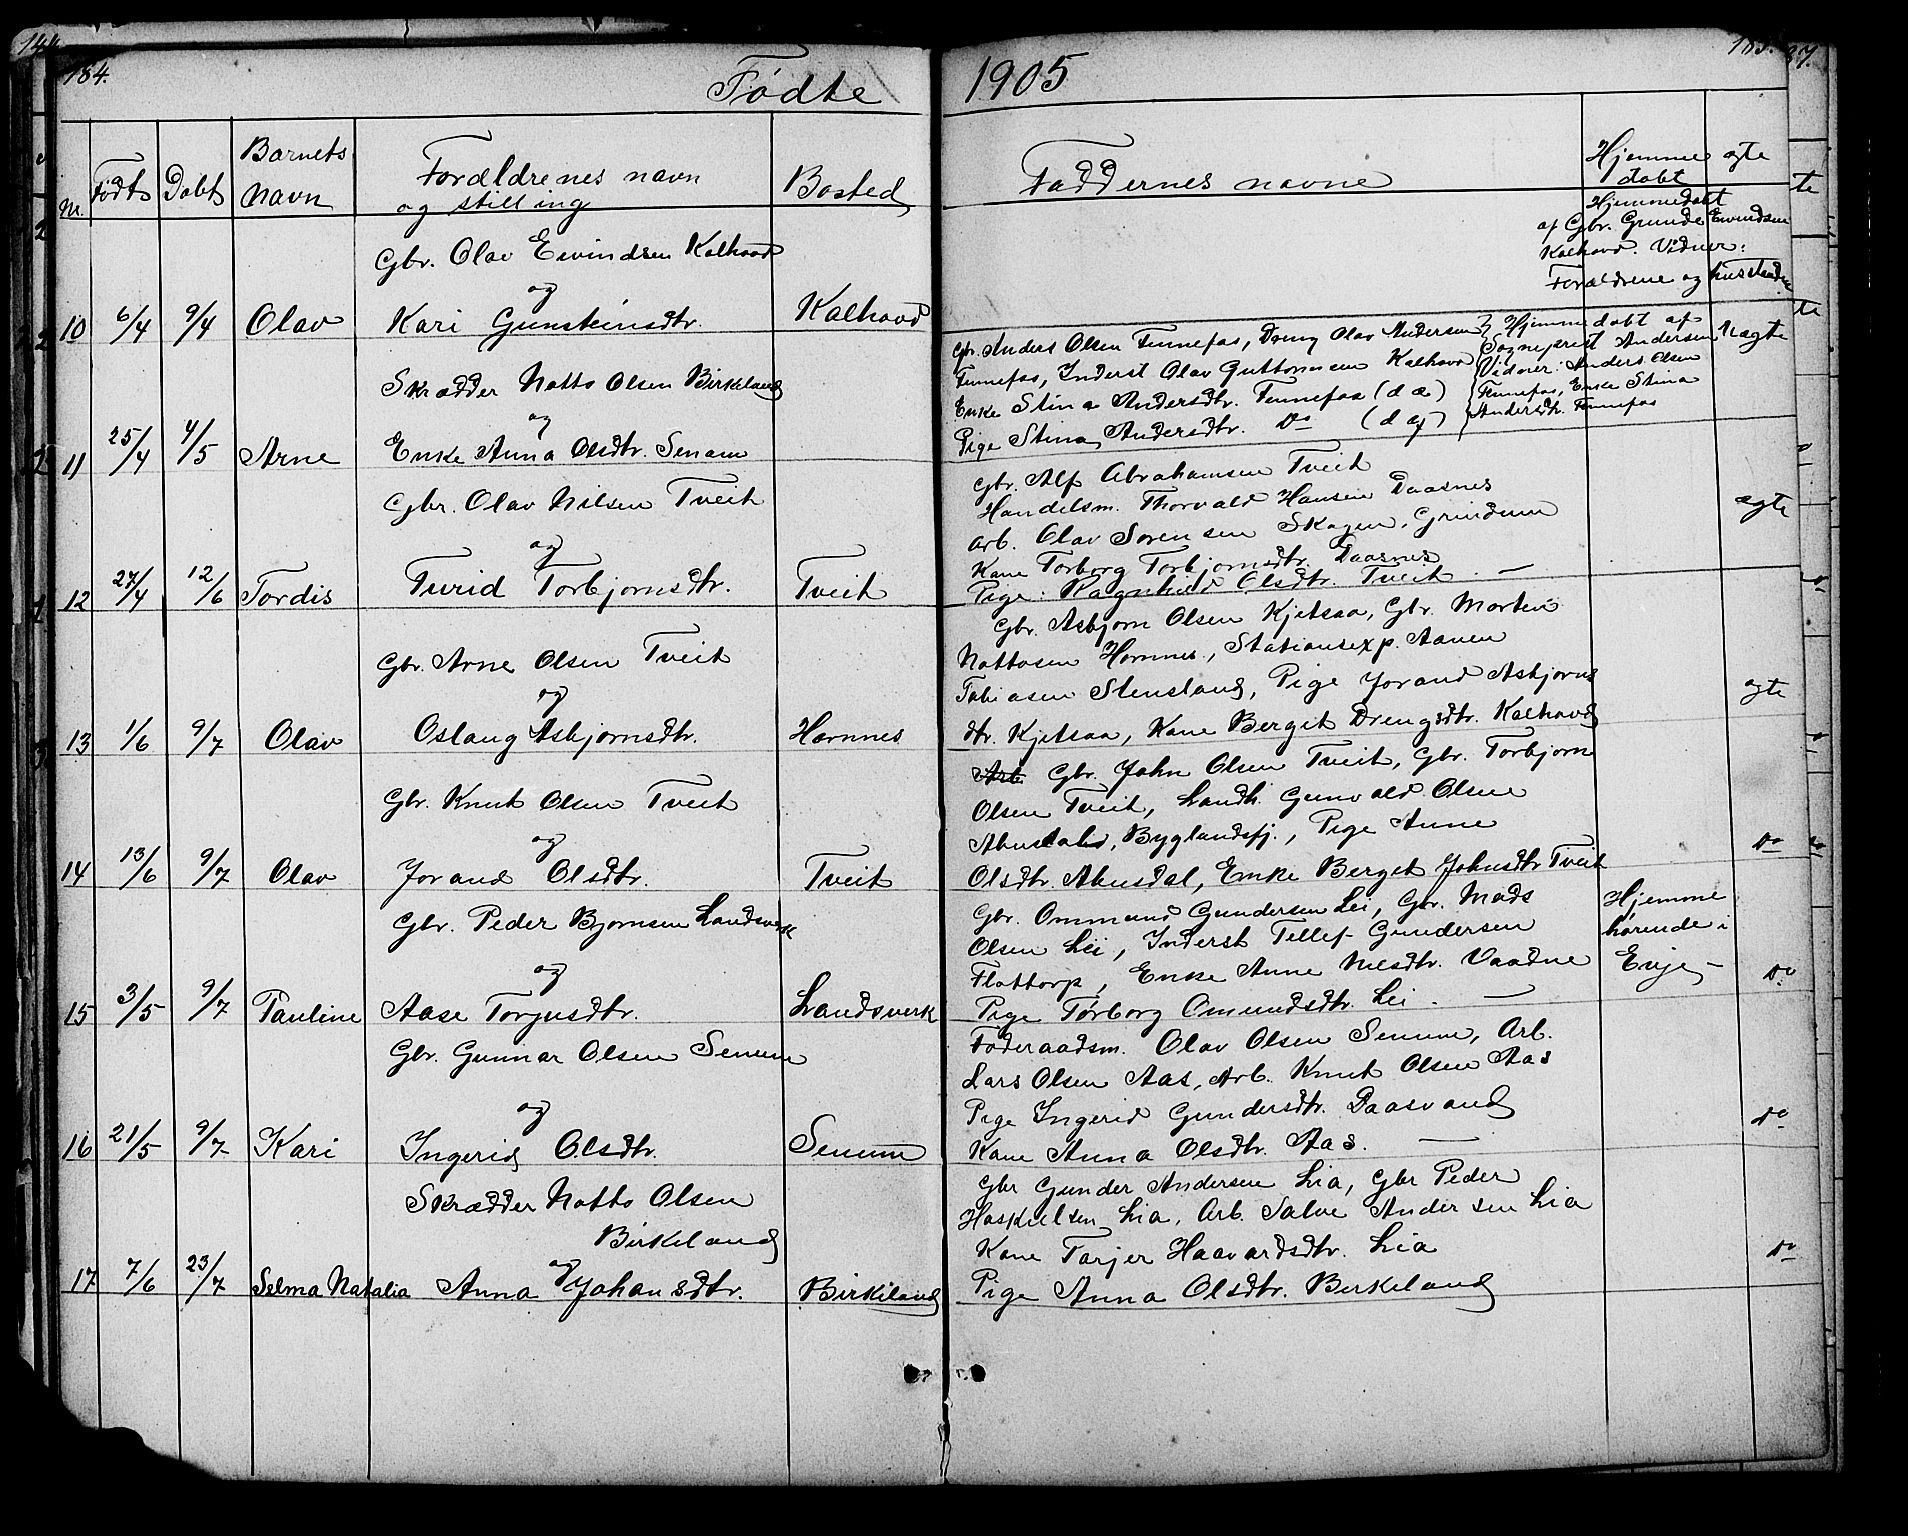 184.
Fødte 1905
185.
Nr. Født Døbt Barnets navn Forældrenes navn og stilling Bosted Faddernes navne Hjemme døbt ægte
Gbr. Olav Eivindsen Kalhovd
og
10 6/4 9/4 Olav Kari Gunsteinsdtr. Kalhovd
Hjemmedøbt
af Gbr. Grunde Eivindsen
Kalhovd. Vidner:
Forældrene og husstanden
Skrædder Notto Olsen Birkeland
og
11 25/4 4/5 Arne Enke Anna Olsdtr. Senum
Gbr. Anders Olsen Fennefos, Dreng Olav Andersen
Fennefos, Inderst Olav Guttormsen Kalhovd
Enke Stina Andersdtr. Fennefos (d æ)
Pige Stina Andersdtr. Do (d y)
Hjemmedøbt af
Sogneprest Andersen
Vidner: Anders Olsen
Fennefos, Enke Stina
Andersdtr. Fennefos
uægte
Gbr. Olav Nilsen Tveit
og
12 27/4 12/6 Tordis Turid Torbjørnsdtr. Tveit
Gbr. Alf Abrahamsen Tveit
Handelsm. Thorvald Hansen Daasnes
Arb. Olav Sørensen Skogen, Grindum
Kone Torborg Torbjørnsdtr. Daasnes
Pige. Ragnhild Olsdtr. Tveit. —
ægte
Gbr. Arne Olsen Tveit
og
13 1/6 9/7 Olav Oslaug Asbjørnsdtr. Hornnes
Gbr. Asbjørn Olsen Kjetsaa, Gbr. Morten
Nottosen Hornnes, Stationsexp. Aanen
Tobiasen Stensland, Pige Jorand Asbjørns
dtr. Kjetsaa, Kone Berget Drengsdtr. Kalhovd
ægte
Gbr. Knut Olsen Tveit
og
14 13/6 9/7 Olav Jorand Olsdtr. Tveit
Arb Gbr. John Olsen Tveit, Gbr. Torbjørn
Olsen Tveit, Landh. Gunvald Olsen
Abusdal, Byglandsfj., Pige Anne
Olsdtr. Abusdal, Enke Berget Johnsdtr Tveit
do
Gbr. Peder Bjørnsen Landsverk
og
15 3/5 9/7 Pauline Aase Torjusdtr. Landsverk
Gbr. Ommund Gundersen Lei, Gbr. Mads
Olsen Lei, Inderst Tellef Gundersen
Flottorp, Enke Anne Nilsdtr. Vaadne
Pige Torborg Omundsdtr. Lei. —
Hjemme
hørende i
Evje —
do
Gbr. Gunnar Olsen Senum
og
16 21/5 9/7 Kari Ingerid Olsdtr. Senum
Føderaadsm. Olav Olsen Senum, Arb.
Lars Olsen Aas, Arb. Knut Olsen Aas
Pige Ingerid Gundersdtr. Daasvand
Kone Anna Olsdtr. Aas. —
do
Skrædder Notto Olsen
Birkeland
og
17 7/6 23/7 Selma Natalia Anna Johansdtr. Birkeland
Gbr Gunder Andersen Lia, Gbr Peder
Haskielsen Lia, Arb. Salve Andersen Lia
Kone Tarjer Haavardsdtr. Lia
Pige Anna Olsdtr. Birkeland
do